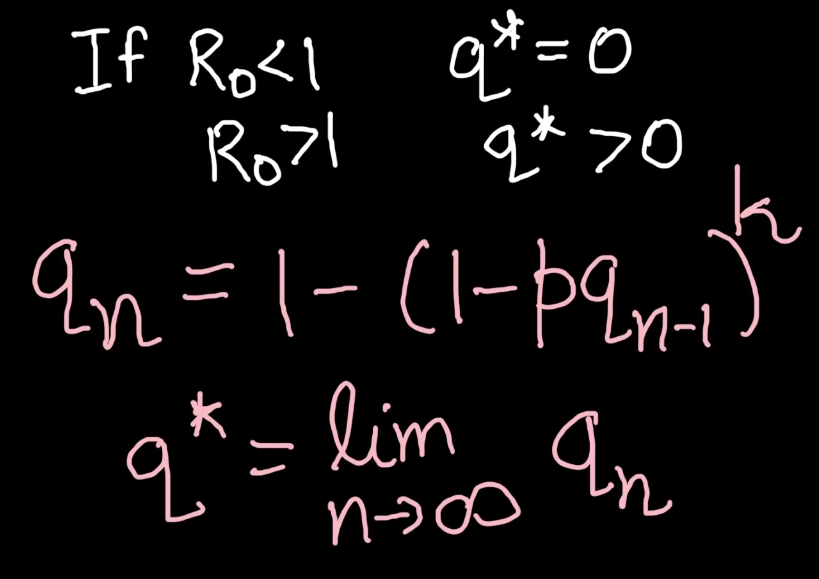 If R₀<1 q*=0
R₀>1 q*>0
qₙ = 1 - (1-pqₙ₋₁)ᵏ
q* = lim qₙ
n→∞